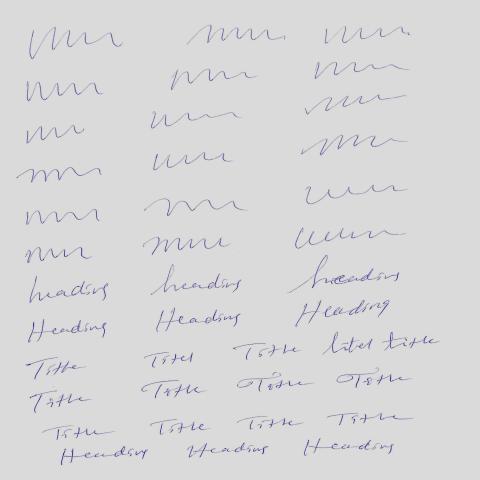 heading heading heading
Heading Heading Heading
Title Titel Title litel title
Title Title Title Title
Title Title Title Title
Heading Heading Heading